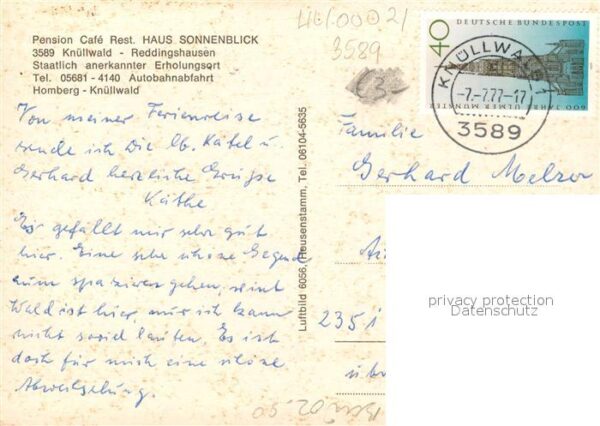 Pension Café Rest. HAUS SONNENBLICK
3589 Knüllwald - Reddingshausen
Staatlich anerkannter Erholungsort
Tel. 05681 - 4140 Autobahnabfahrt
Homberg - Knüllwald
3589
€3,-
DEUTSCHE BUNDESPOST
40
600 JAHRE ULMER MÜNSTER
KNÜLLWALD 1
-7.-7.77-17
3589
Von meiner Ferienreise
sende ich Die lb. Kätel u.
Gerhard herzliche Grüße
Käthe
Es gefällt mir sehr gut
hier. Eine sehr schöne Gegend
zum spazieren gehen, viel
Wald ist hier, nur ich kann
nicht soviel laufen. Es ist
doch für mich eine schöne
Abwechslung.
Luftbild 6056, Heusenstamm, Tel. 06104-5635
Familie
Gerhard Melzer
2351
privacy protection
Datenschutz